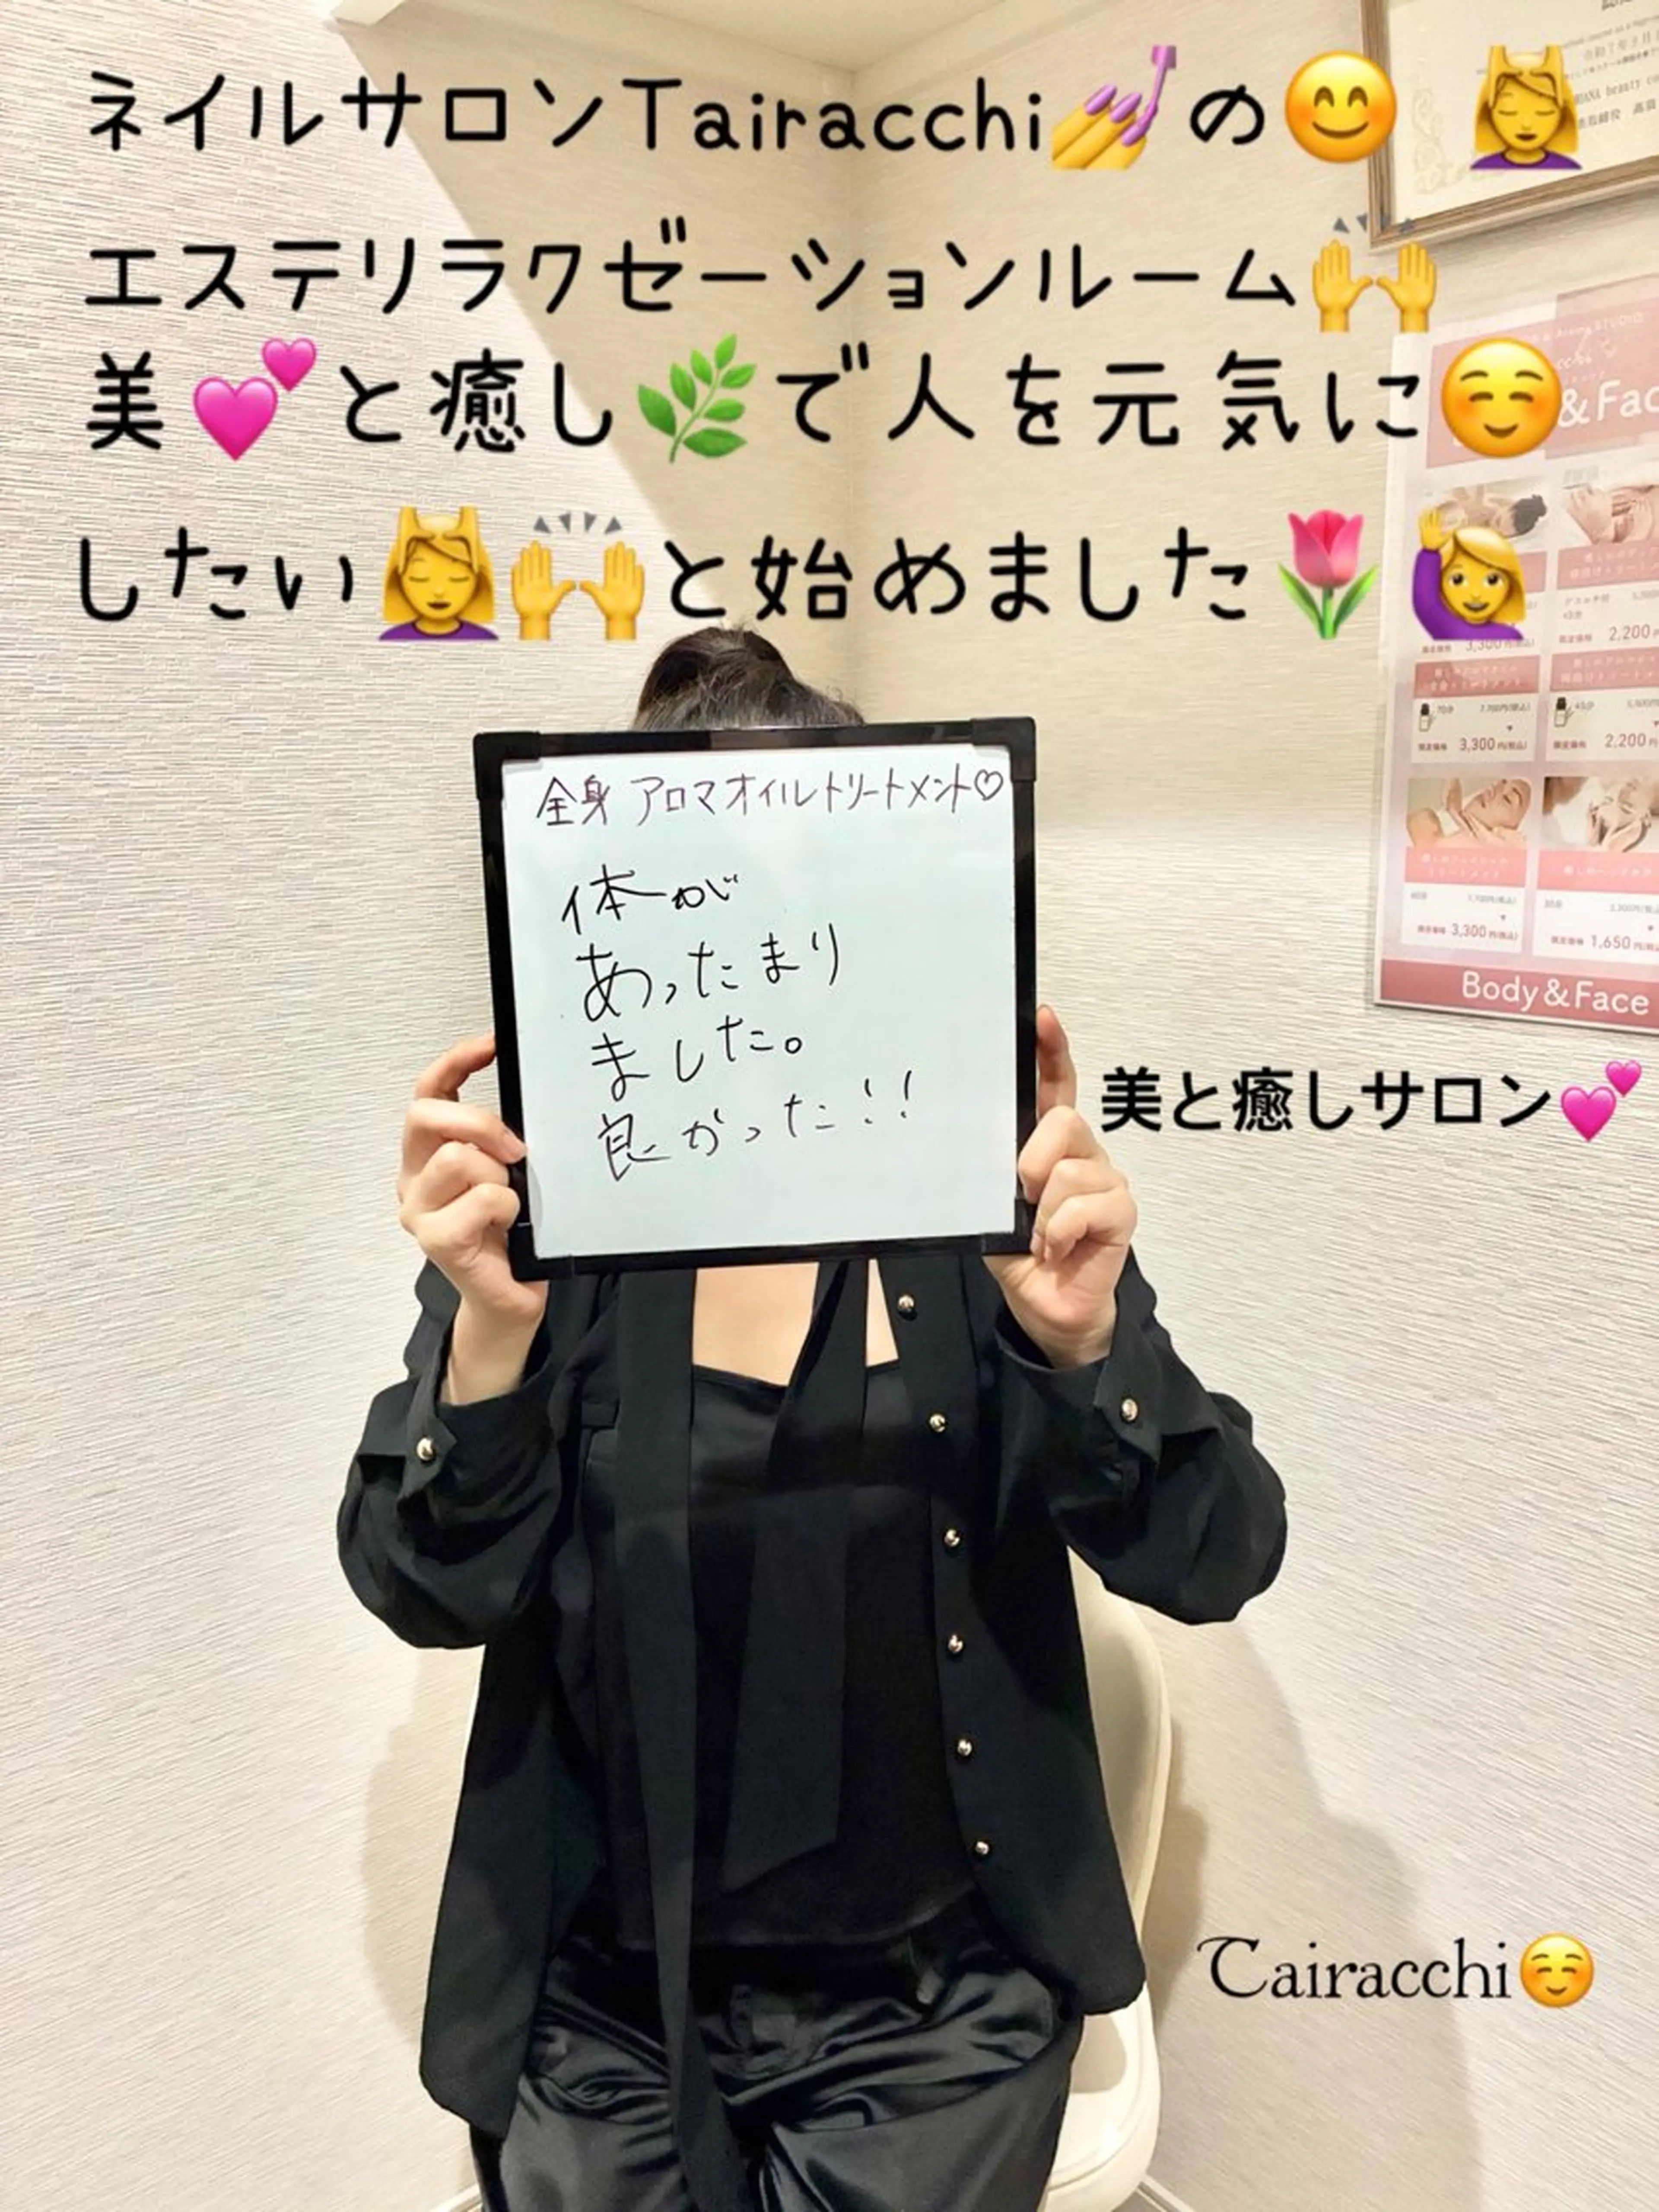 ネイルサロンTairacchi💅の😊 💆‍♀️
エステリラクゼーションルーム🙌
美💕と癒し🌿で人を元気に☺️
したい💆‍♀️🙌と始めました🌷🙋‍♀️
全身 アロマオイルトリートメント♡
体が
あったまり
ました。
良かった!!
&Fac
2,200
3,300円(税込)
2,200
3,300円(税込)
1,650円(税込
Body&Face
美と癒しサロン💕
Tairacchi☺️